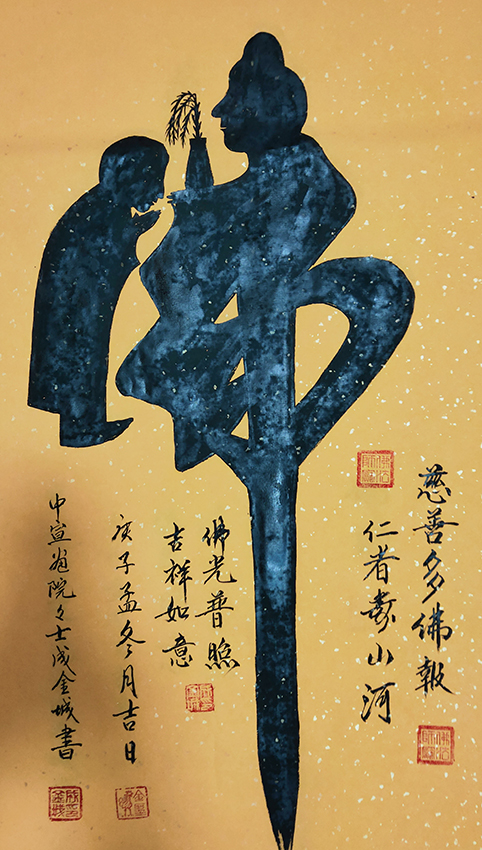 佛
慈善多佛報
仁者壽山河
佛光普照
吉祥如意
庚子孟冬月吉日
中宣alt院々士成金城書